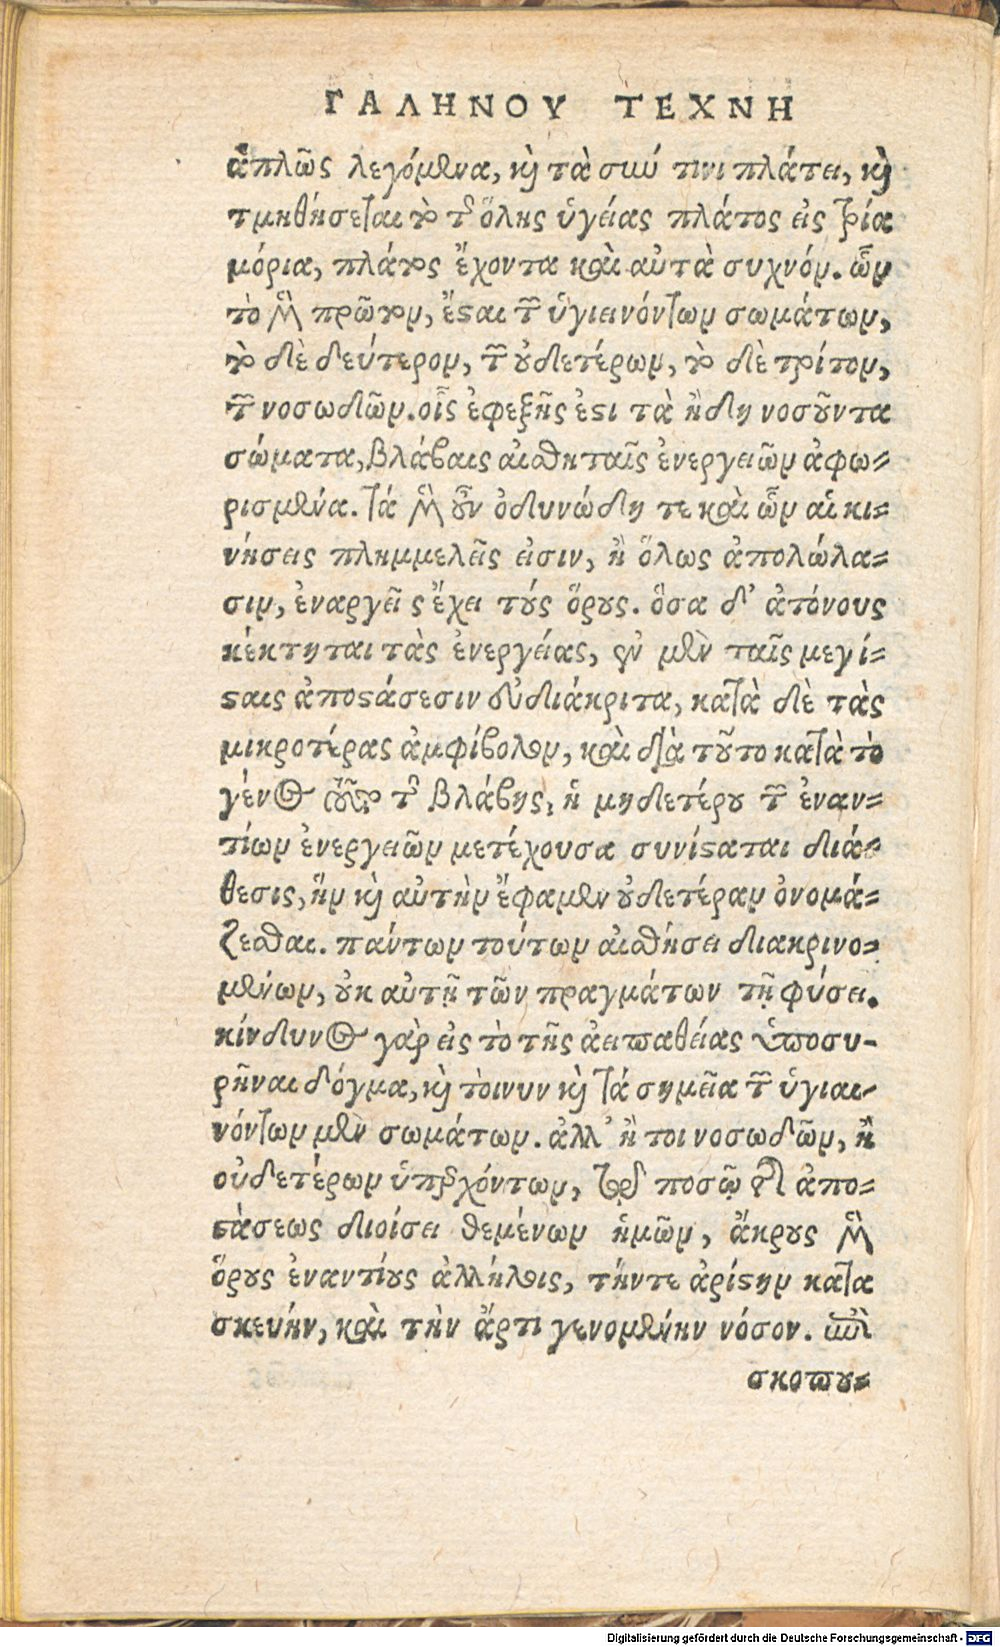 ΓΑΛΗΝΟΥ ΤΕΧΝΗ
ἁπλῶς λεγόμενα, καὶ τὰ σύν τινι πλάτει, καὶ
τμηθήσεται τὸ τῆς ὅλης ὑγείας πλάτος εἰς τρία
μόρια, πλάτος ἔχοντα καὶ αὐτὰ συχνόν. ὧν
τὸ μὲν πρῶτον, ἔςαι τῶν ὑγιεινόντων σωμάτων,
τὸ δὲ δεύτερον, τῶν ȣδετέρων, τὸ δὲ τρίτον,
τῶν νοσωδῶν. οἷς ἐφεξῆς ἐςὶ τὰ ἤδη νοσȣ͂ντα
σώματα, βλάβαις αἰσθηταῖς ἐνεργειῶν ἀφω=
ρισμένα. τά μὲν ȣ͂ν ὀδυνώδη τε καὶ ὧν αἱ κι=
νήσεις πλημμελεῖς εἰσιν, ἢ ὅλως ἀπολώλα=
σιν, ἐναργεῖς ἔχει τȣ́ς ὅρȣς. ὅσα δ’ ἀτόνους
κέκτηται τὰς ἐνεργείας, ἐν μὲν ταῖς μεγί=
ςαις ἀποςάσεσιν εὐδιάκριτα, κατὰ δὲ τὰς
μικροτέρας ἀμφίβολον, καὶ διὰ τȣ͂το κατὰ τὸ
γένος τȣ͂το τῆς βλάβης, ἡ μηδετέρȣ τῶν ἐναν=
τίων ἐνεργειῶν μετέχουσα συνίςαται διά=
θεσις, ἣν καὶ αὐτὴν ἔφαμεν ȣδετέραν ὀνομά=
ζεσθαι. πάντων τούτων αἰσθήσει διακρινο=
μένων, ȣκ αὐτῇ τῶν πραγμάτων τῇ φύσει.
κίνδυνος γὰρ εἰς τὸ τῆς ἀειπαθείας ὑποσυ-
ρῆναι δόγμα, καὶ τὸινυν καὶ τά σημεῖα τῶν ὑγιαι-
νόντων μὲν σωμάτων. ἀλλ’ ἤ τοι νοσωδῶν, ἢ
οὐδετέρων ὑπαρχόντων, ποσῷ τῆς ἀπο=
ςάσεως διοίσει θεμένων ἡμῶν, ἄκρȣς μὲν
ὅρȣς ἐναντίȣς ἀλλήλοις, τήντε ἀρίςην κατα
σκευήν, καὶ τὴν ἄρτι γενομένην νόσον. ἐπὶ
σκοπȣ=
Digitalisierung gefördert durch die Deutsche Forschungsgemeinschaft - DFG